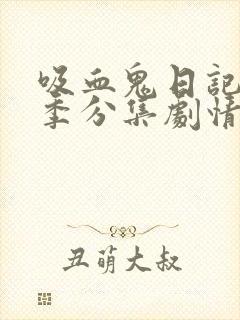 吸血鬼日記
季分集劇情
丑萌大叔